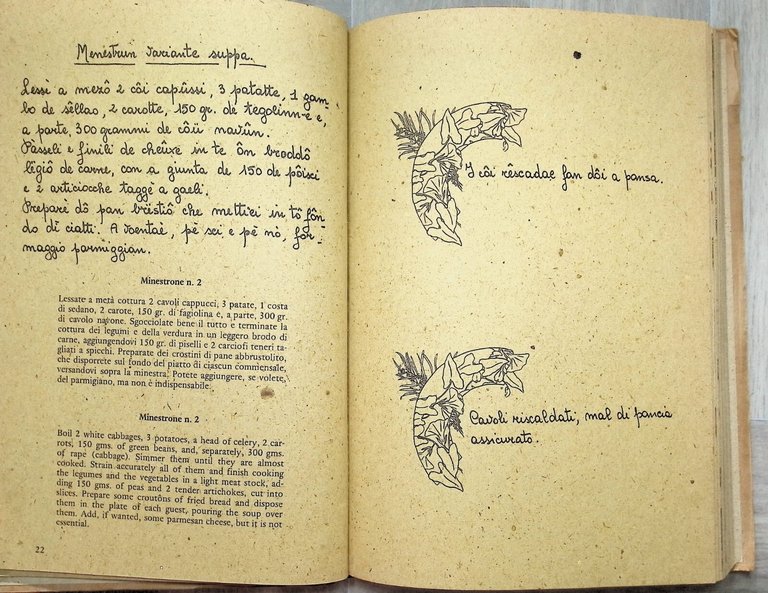 Menestrun variante suppa.
Lessè a mezô 2 côi capûssi, 3 patatte, 1 gam-
bo de sellao, 2 carotte, 150 gr. de tegolinn-e e,
a parte, 300 grammi de côü navûn.
Passeli e finili de cheûxe in te ôn broddô
lëgiô de carne, con a giunta de 150 de pôisci
e 2 articiocche taggè a gaeli.
Preparè dô pan brustiô che mettiei in tô fon-
do di ciatti. A voentae, pè sci e pè nò, for-
maggio parmiggian.
Minestrone n. 2
Lessate a metà cottura 2 cavoli cappucci, 3 patate, 1 costa
di sedano, 2 carote, 150 gr. di fagiolina e, a parte, 300 gr.
di cavolo navone. Sgocciolate bene il tutto e terminate la
cottura dei legumi e della verdura in un leggero brodo di
carne, aggiungendovi 150 gr. di piselli e 2 carciofi teneri ta-
gliati a spicchi. Preparate dei crostini di pane abbrustolito,
che disporrete sul fondo del piatto di ciascun commensale,
versandovi sopra la minestra. Potete aggiungere, se volete,
del parmigiano, ma non è indispensabile.
Minestrone n. 2
Boil 2 white cabbages, 3 potatoes, a head of celery, 2 car-
rots, 150 gms. of green beans, and, separately, 300 gms.
of rape (cabbage). Simmer them until they are almost
cooked. Strain accurately all of them and finish cooking
the legumes and the vegetables in a light meat stock, ad-
ding 150 gms. of peas and 2 tender artichokes, cut into
slices. Prepare some croutôns of fried bread and dispose
them in the plate of each guest, pouring the soup over
them. Add, if wanted, some parmesan cheese, but it is not
essential.
22
I côi rescadae fan dôi a pansa.
Cavoli riscaldati, mal di pancia
assicurato.